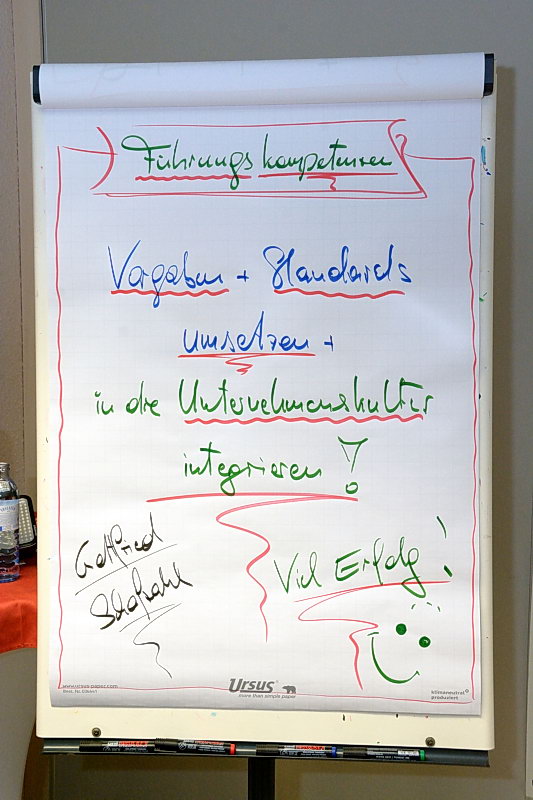 Führungskompetenzen
Vorgaben + Standards
umsetzen +
in die Unternehmenskultur
integrieren!
Gottfried
Viel Erfolg!
www.ursus-paper.com
URSUS
more than simple paper
klimaneutral
produziert